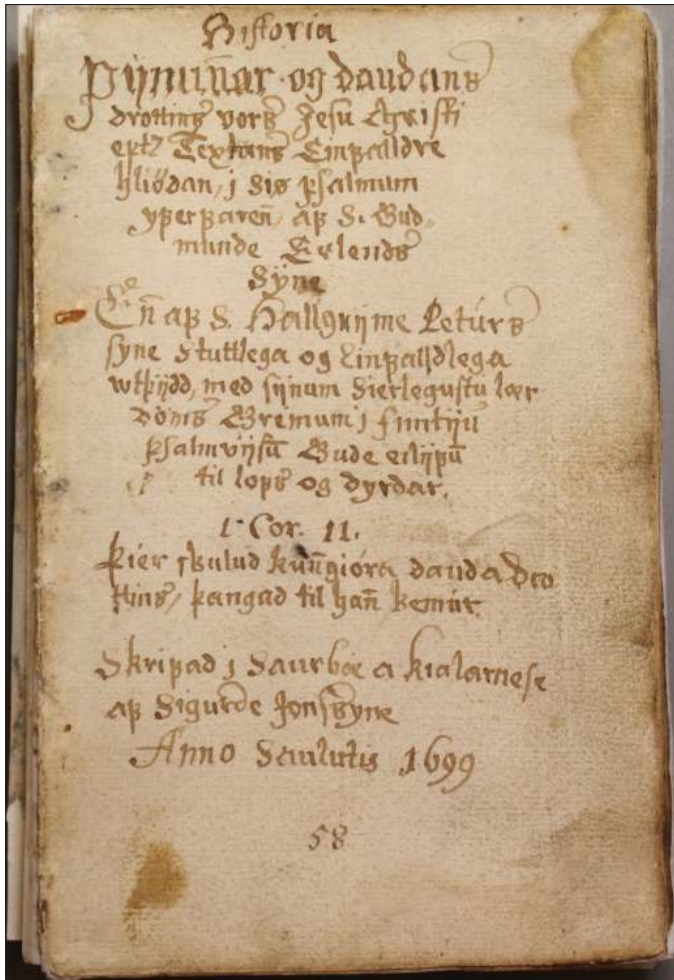 Historia
Pijnun̄ar og daudans
drottins vors Jesu Christi
epter Textans Einfalldre
hliödan, j Siø psalmum
yferfaren̄, af S. Gud-
munde Erlends
Syne
En̄ af S. Hallgrijme Peturs
syne Stuttlega og Einfalldlega
wtþijdd, med sijnum Sierlegustu lær
döms Greinum j fimtiju
psalmvijsū Gude eilijfū
til lofs og dyrdar.
1 Cor. 11.
þier skulud kun̄giöra dauda dro
ttins, þangad til han̄ kemur.
Skrifad j Saurbæ a kialarnese
af Sigurde Jonssyne
Anno Saulutis 1699
58